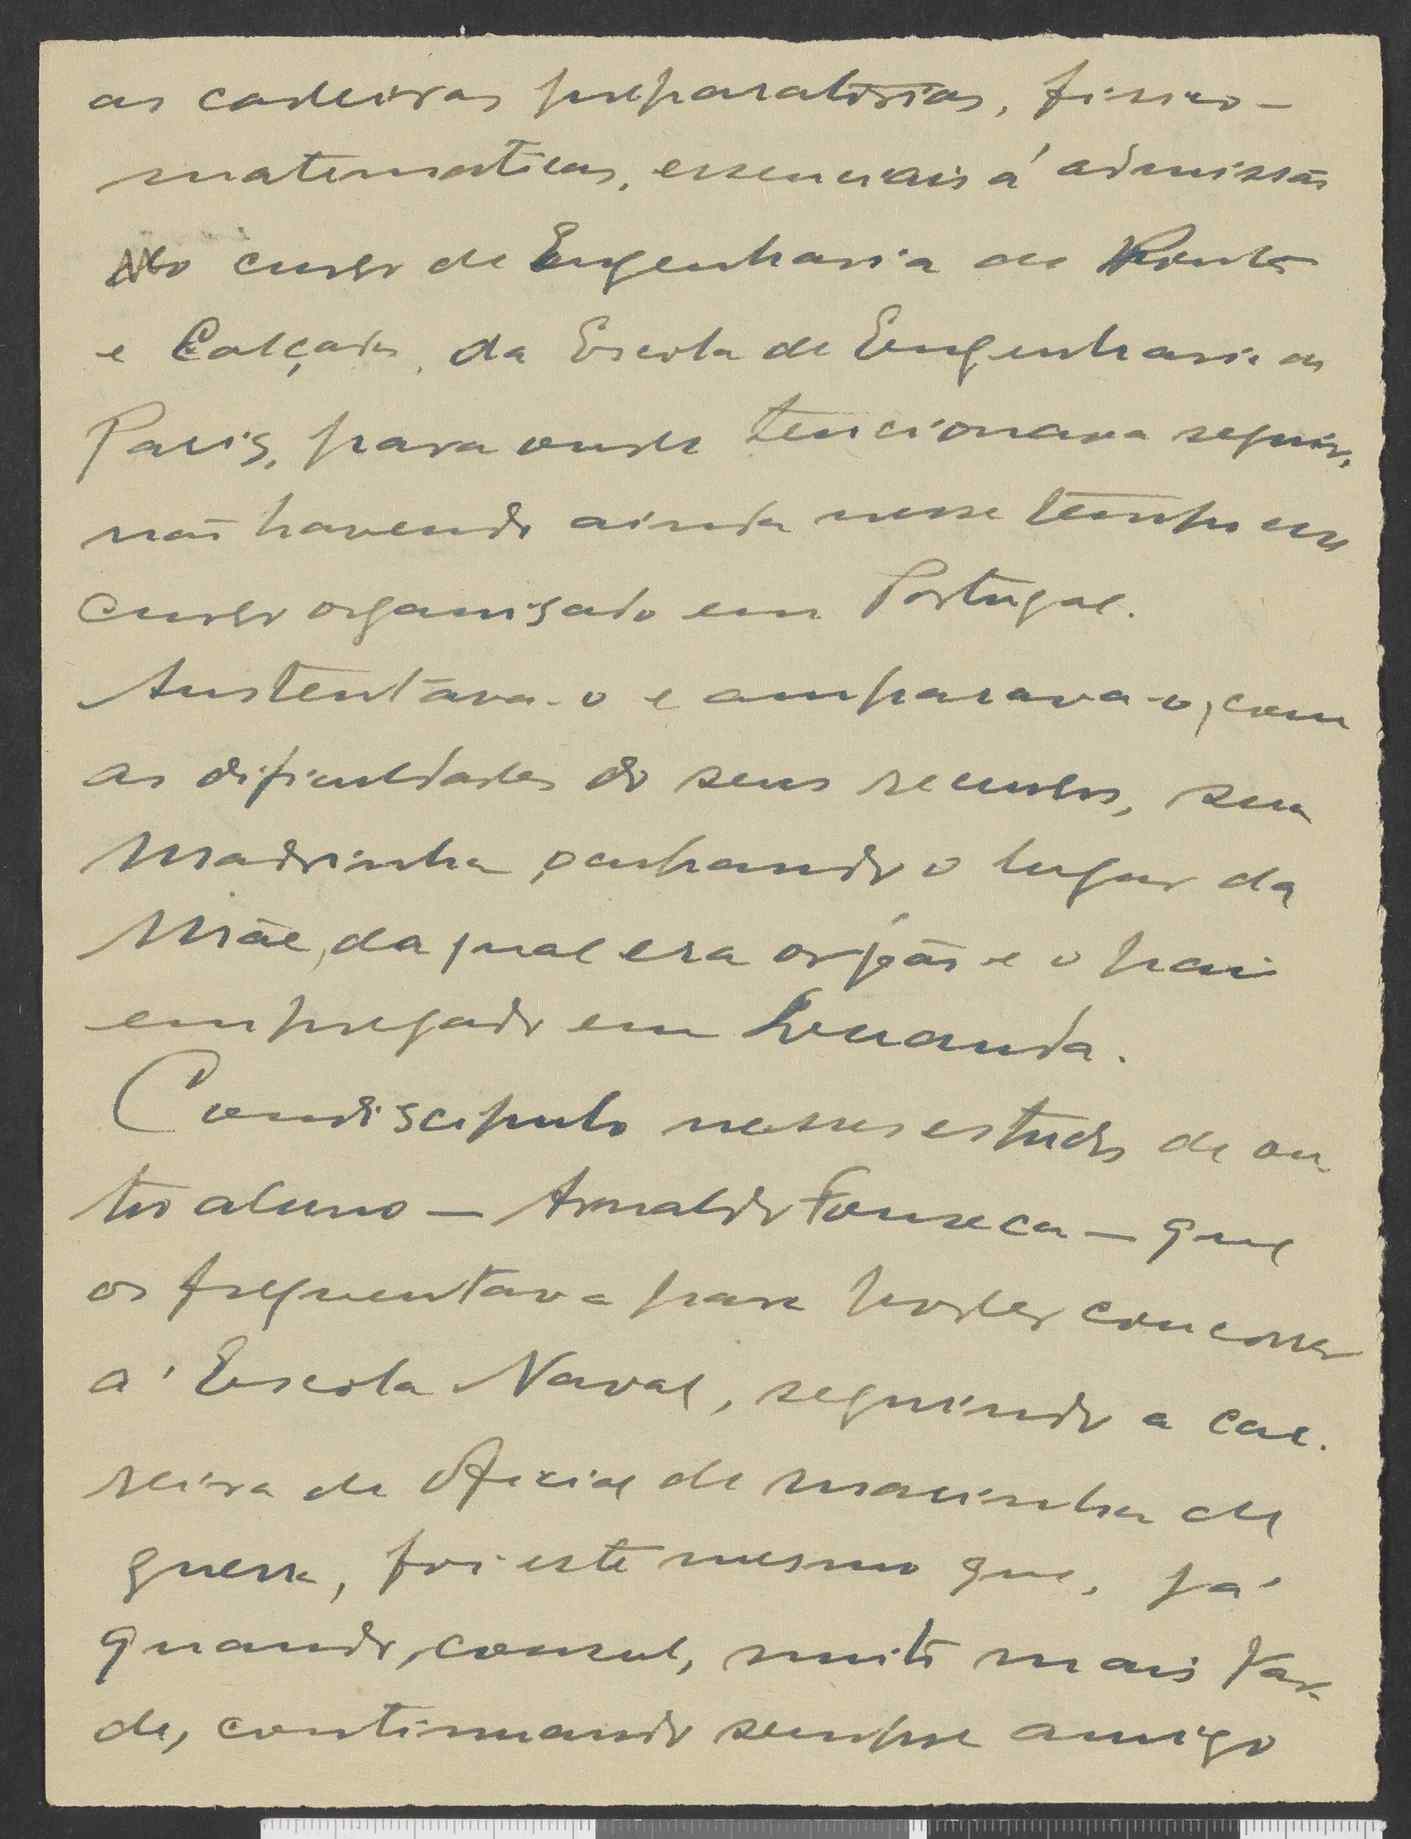 as cadeiras preparatorias, fisico-
matematicas, essenciais á admissão
no curso de Engenharia de Pontes
e Calçadas, da Escola de Engenharia de
Paris, para onde tencionava seguir,
não havendo ainda nesse tempo esse
curso organisado em Portugal.
Sustentava-o e amparava-o, com
as dificuldades do seus recursos, sua
Madrinha, ocupando o lugar da
Mãe, da qual era orfão e o pai
empregado em Luanda.
Condiscipulo nesses estudos de ou-
tro aluno — Arnaldo Fonseca — que
os frequentava para poder concorrer
á Escola Naval, seguindo a car-
reira de Oficial de marinha de
guerra, foi este mesmo que, já
quando, consul, muito mais tar-
de, continuando sempre amigo